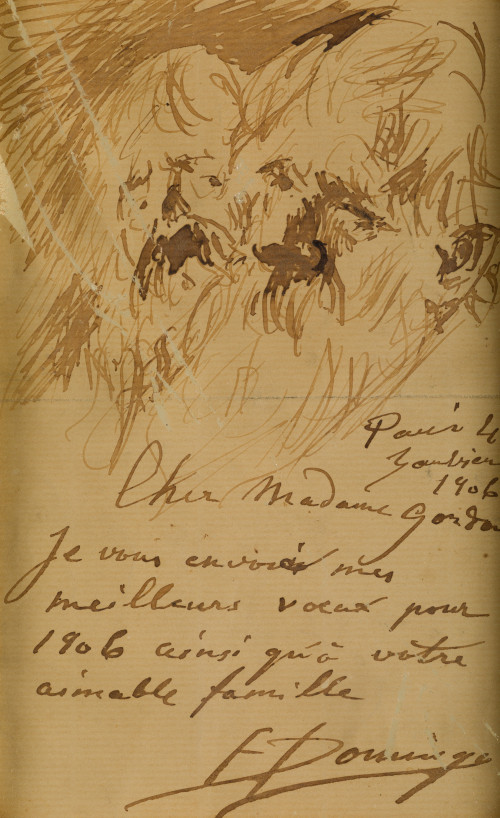 Paris 4
Janvier
1906
Cher Madame Gordon
Je vous envoie mes
meilleurs vœux pour
1906 ainsi qu'à vôtre
aimable famille
E Domingo